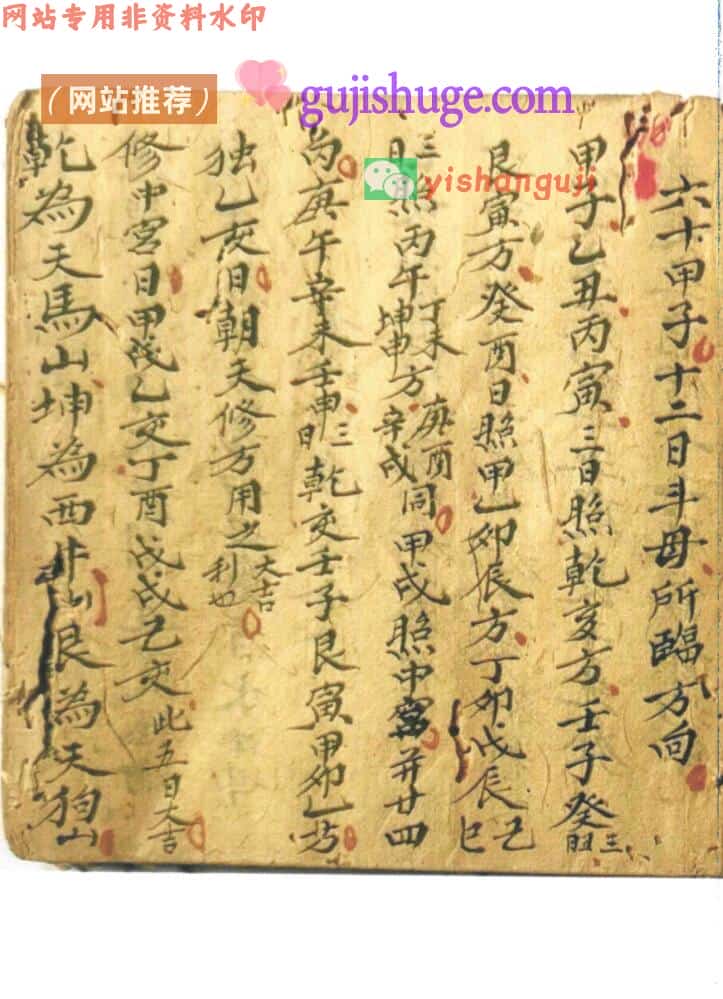 网站专用非资料水印
（网站推荐）
gujishuge.com
yishanguji
六十甲子十二日斗母所臨方向
甲子乙丑丙寅三日照乾亥方壬子癸
艮寅方癸酉日照甲乙卯辰方丁卯戊辰己巳
三日照丙午丁未坤申方庚酉辛戌同甲戌照中宮并廿四
庚午辛未壬申三日乾亥壬子艮寅甲卯乙方
独乙亥日朝天修方用之大吉利也
修中宮日甲戌乙亥丁酉戊戌己亥此五日大吉
乾為天馬山坤為西牛山艮為天狗山